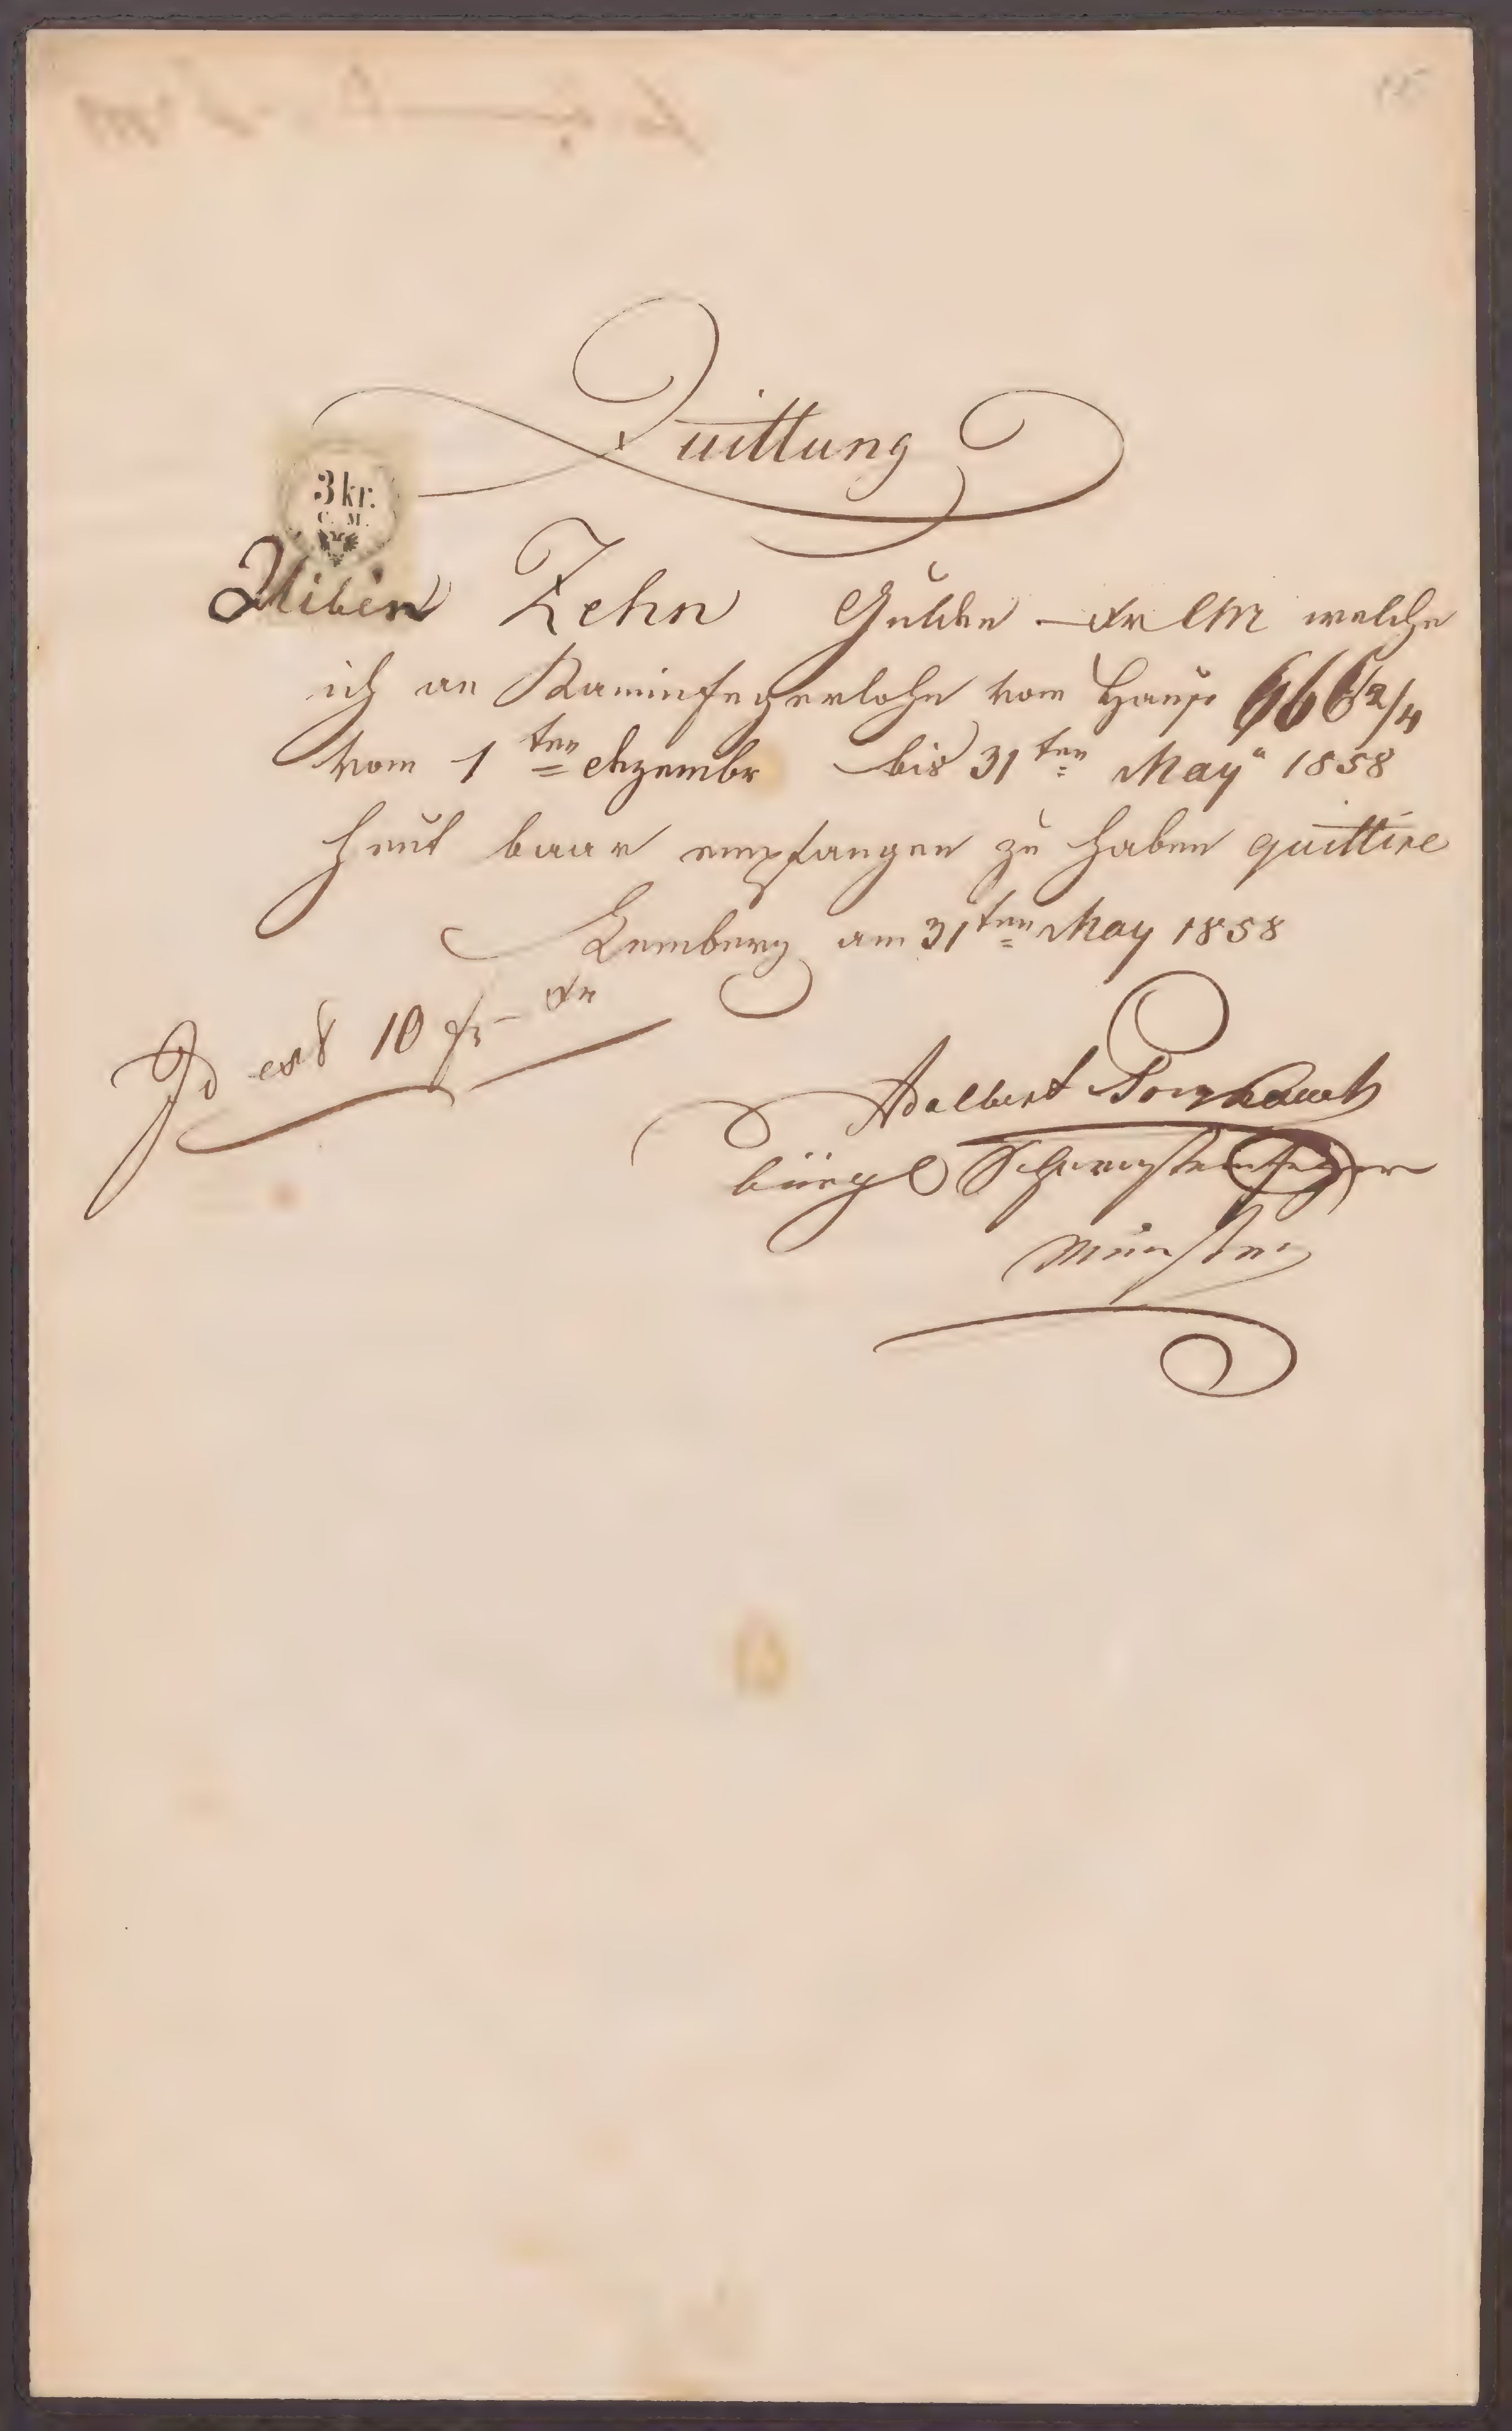 Quittung
3 kr.
C. M.
Uiber Zehn Gulden – Xr CM welche
ich an Kaminfegerlohn vom Hause 666 2/4
vom 1ten Dezembr bis 31ten May 1858
heut baar empfangen zu haben quittire
Lemberg am 31ten May 1858
Id est 10 fr – Xr
Adalbert
bürgl Schornsteinfeger
Meister